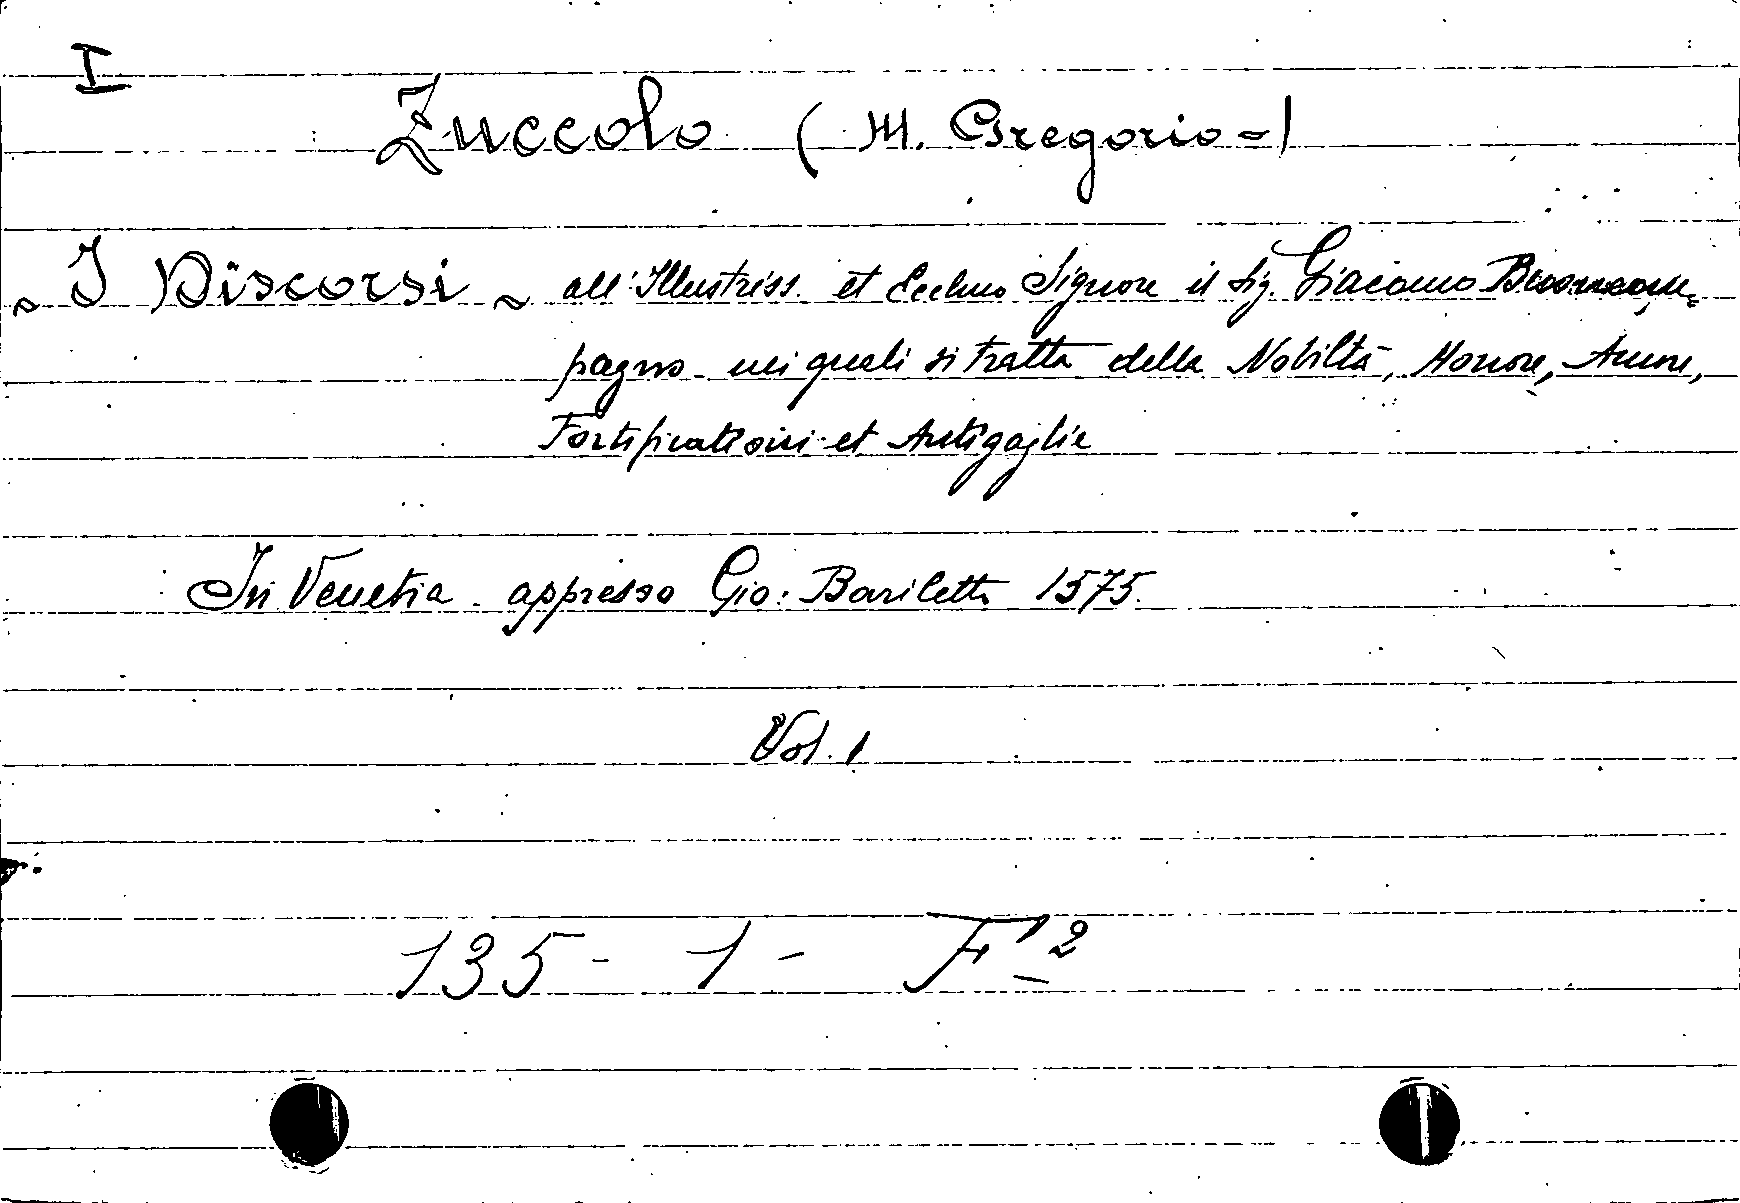 I
Zuccolo (M. Gregorio -)
~ I Discorsi ~ all'Illustriss. et Ecclmo Signore il Sig. Giacomo Buoncom=
pagno - nei quali si tratta della Nobiltà, Honore, Amore,
Fortificationi et Antigaglie
In Venetia - appresso Gio: Bariletti 1575.
Vol. 1
135 - 1 - F 2